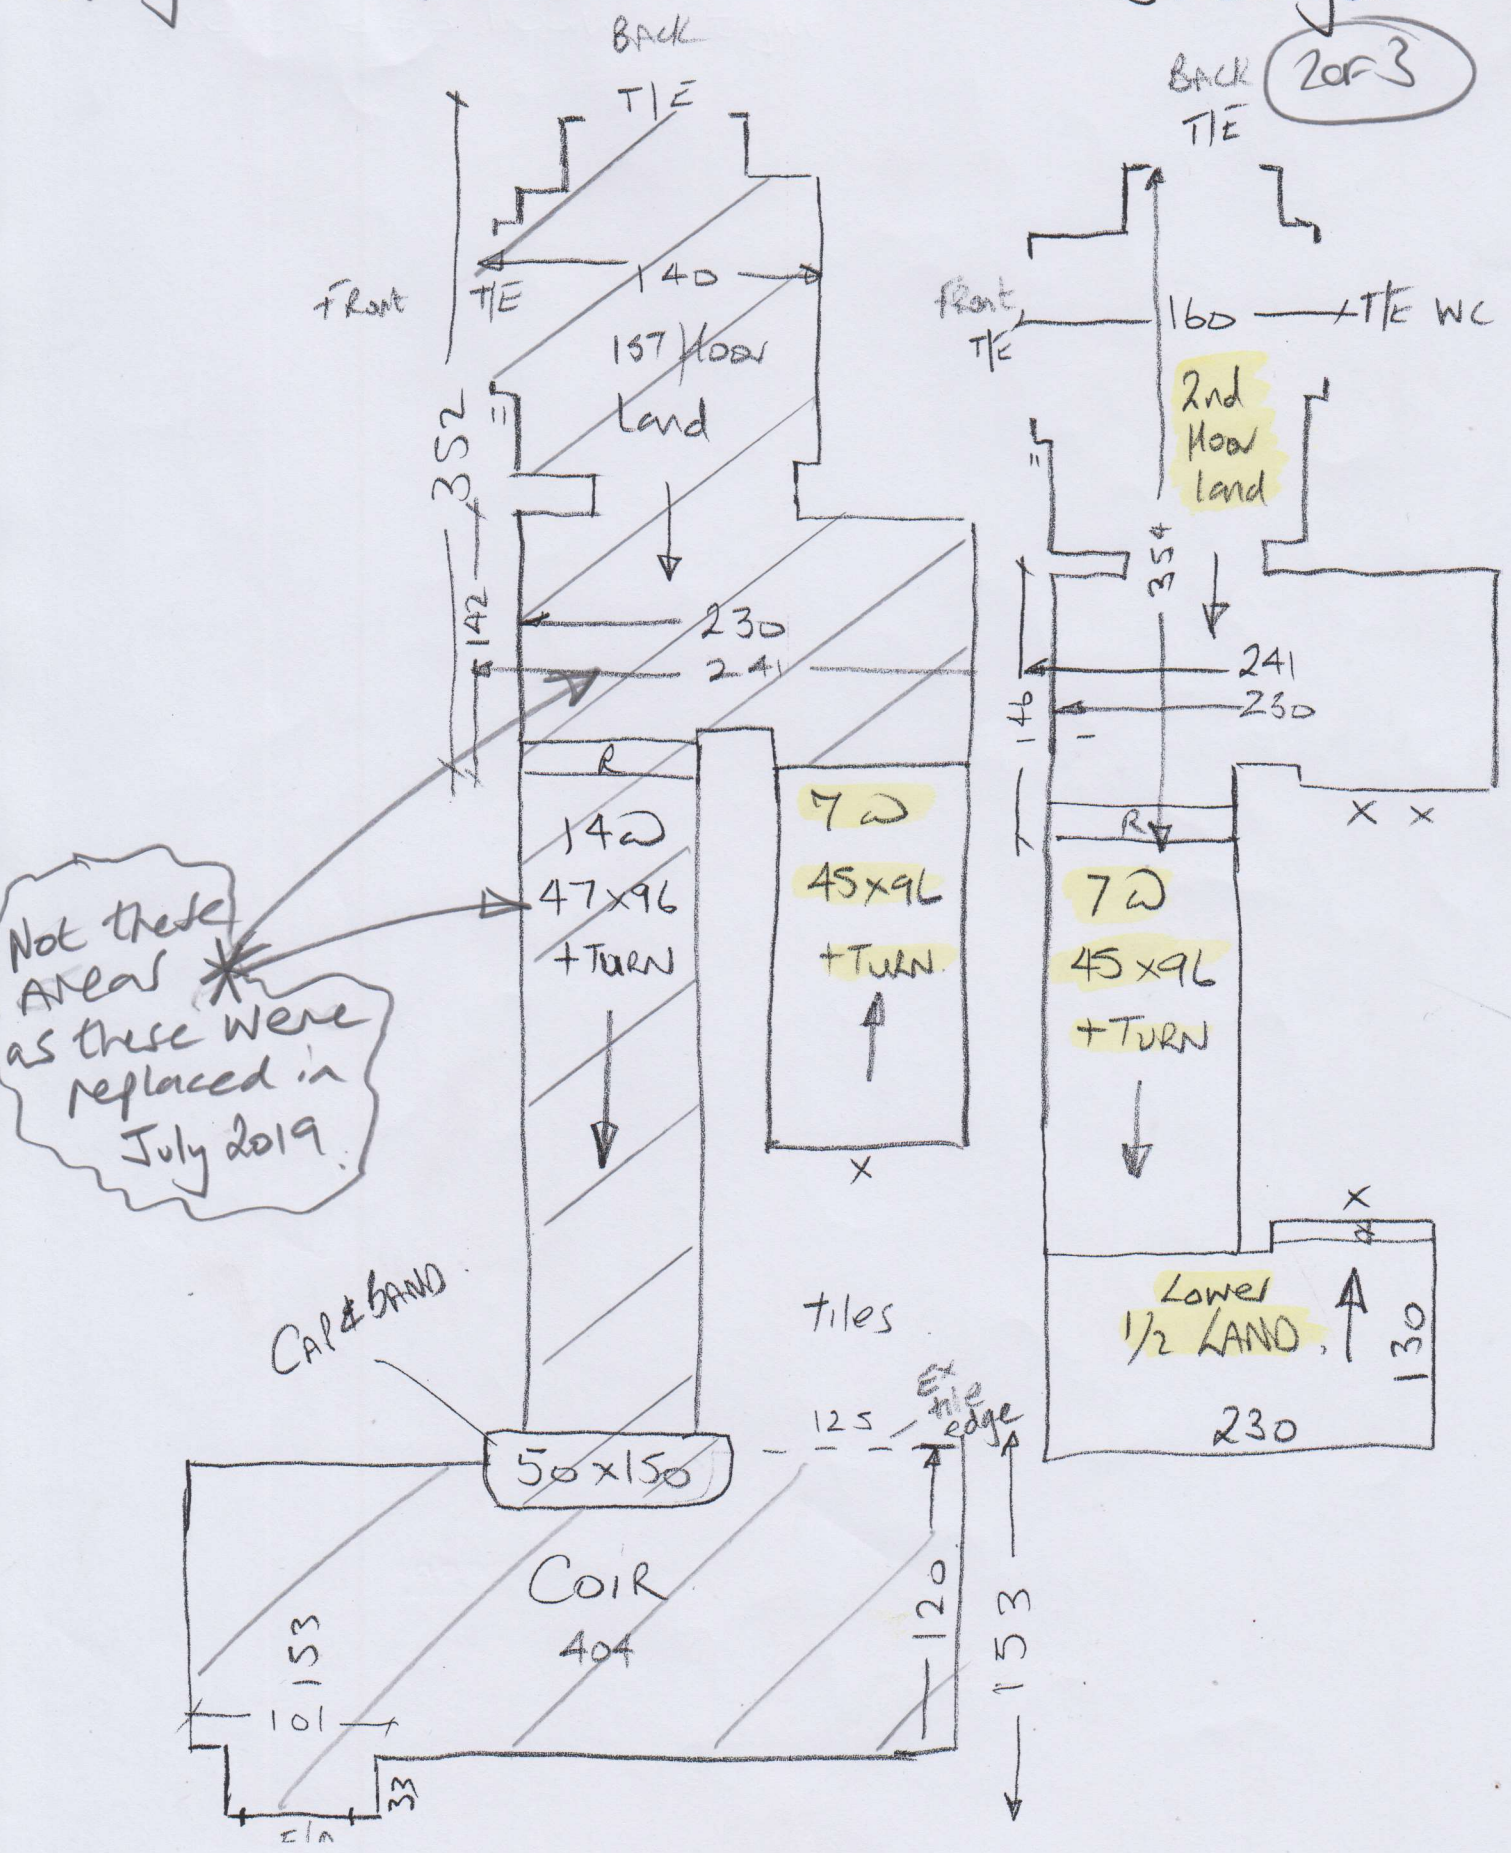 BACK
T/E
BACK
T/E
2 OF 3
FRONT
T/E
140
1ST floor
Land
352
142
230
241
R
14 W
47x96
+TURN
7 W
45x96
+TURN
X
Not these
areas
as these were
replaced in
July 2019.
CAP & BAND
50x150
tiles
125
Ex
tile
edge
COIR
404
153
101
33
120
153
FRONT
T/E
160
T/E WC
2nd
floor
land
354
241
230
146
R
X X
7 W
45x96
+TURN
X
R
Lower
1/2 LAND.
130
230